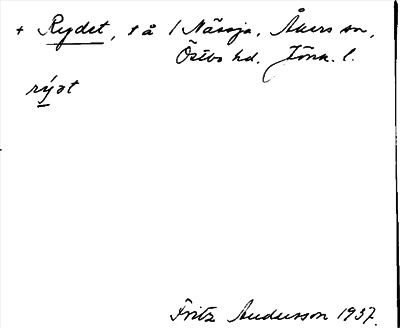 + Rydet, t å / Nässja, Åkers sn,
Östbo hd. Jönk. l.
rýdt
Fritz Andersson 1937.